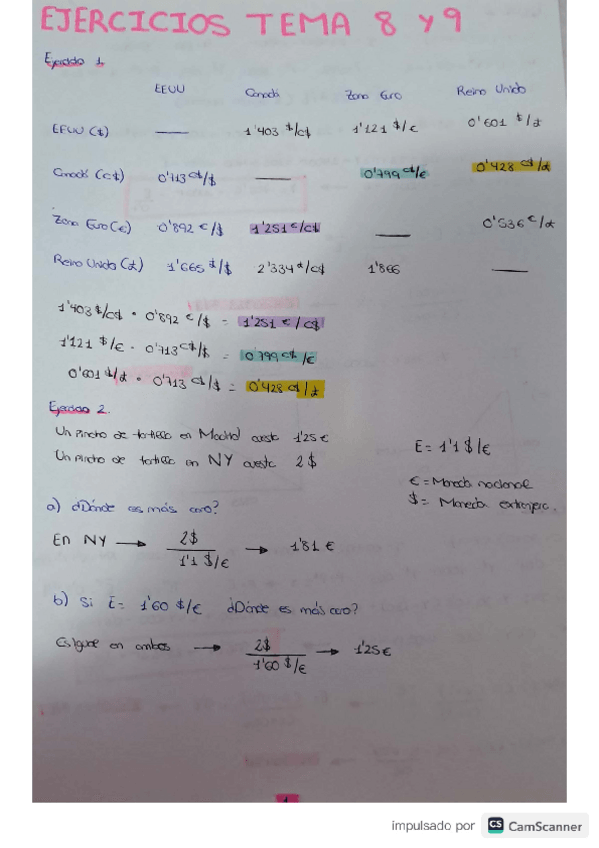 EJERCICIOS TEMA 8 Y 9
Ejercicio 1.
EEUU Canadá Zona Euro Reino Unido
EEUU ($) — 1'403 $/c$ 1'121 $/€ 0'601 $/£
Canadá (c$) 0'713 c$/$ — 0'799 c$/€ 0'428 c$/£
Zona Euro (€) 0'892 €/$ 1'251 €/c$ — 0'536 €/£
Reino Unido (£) 1'665 £/$ 2'334 £/c$ 1'866 —
1'403 $/c$ · 0'892 €/$ = 1'251 €/c$
1'121 $/€ · 0'713 c$/$ = 0'799 c$/€
0'601 $/£ · 0'713 c$/$ = 0'428 c$/£
Ejercicio 2.
Un pincho de tortilla en Madrid cuesta 1'25 €
Un pincho de tortilla en NY cuesta 2 $
E = 1'1 $/€
€ = Moneda nacional
$ = Moneda extranjera.
a) ¿Dónde es más caro?
En NY → 2$ / 1'1 $/€ → 1'81 €
b) Si E = 1'60 $/€ ¿Dónde es más caro?
Es igual en ambos → 2$ / 1'60 $/€ → 1'25 €
1
impulsado por CS CamScanner